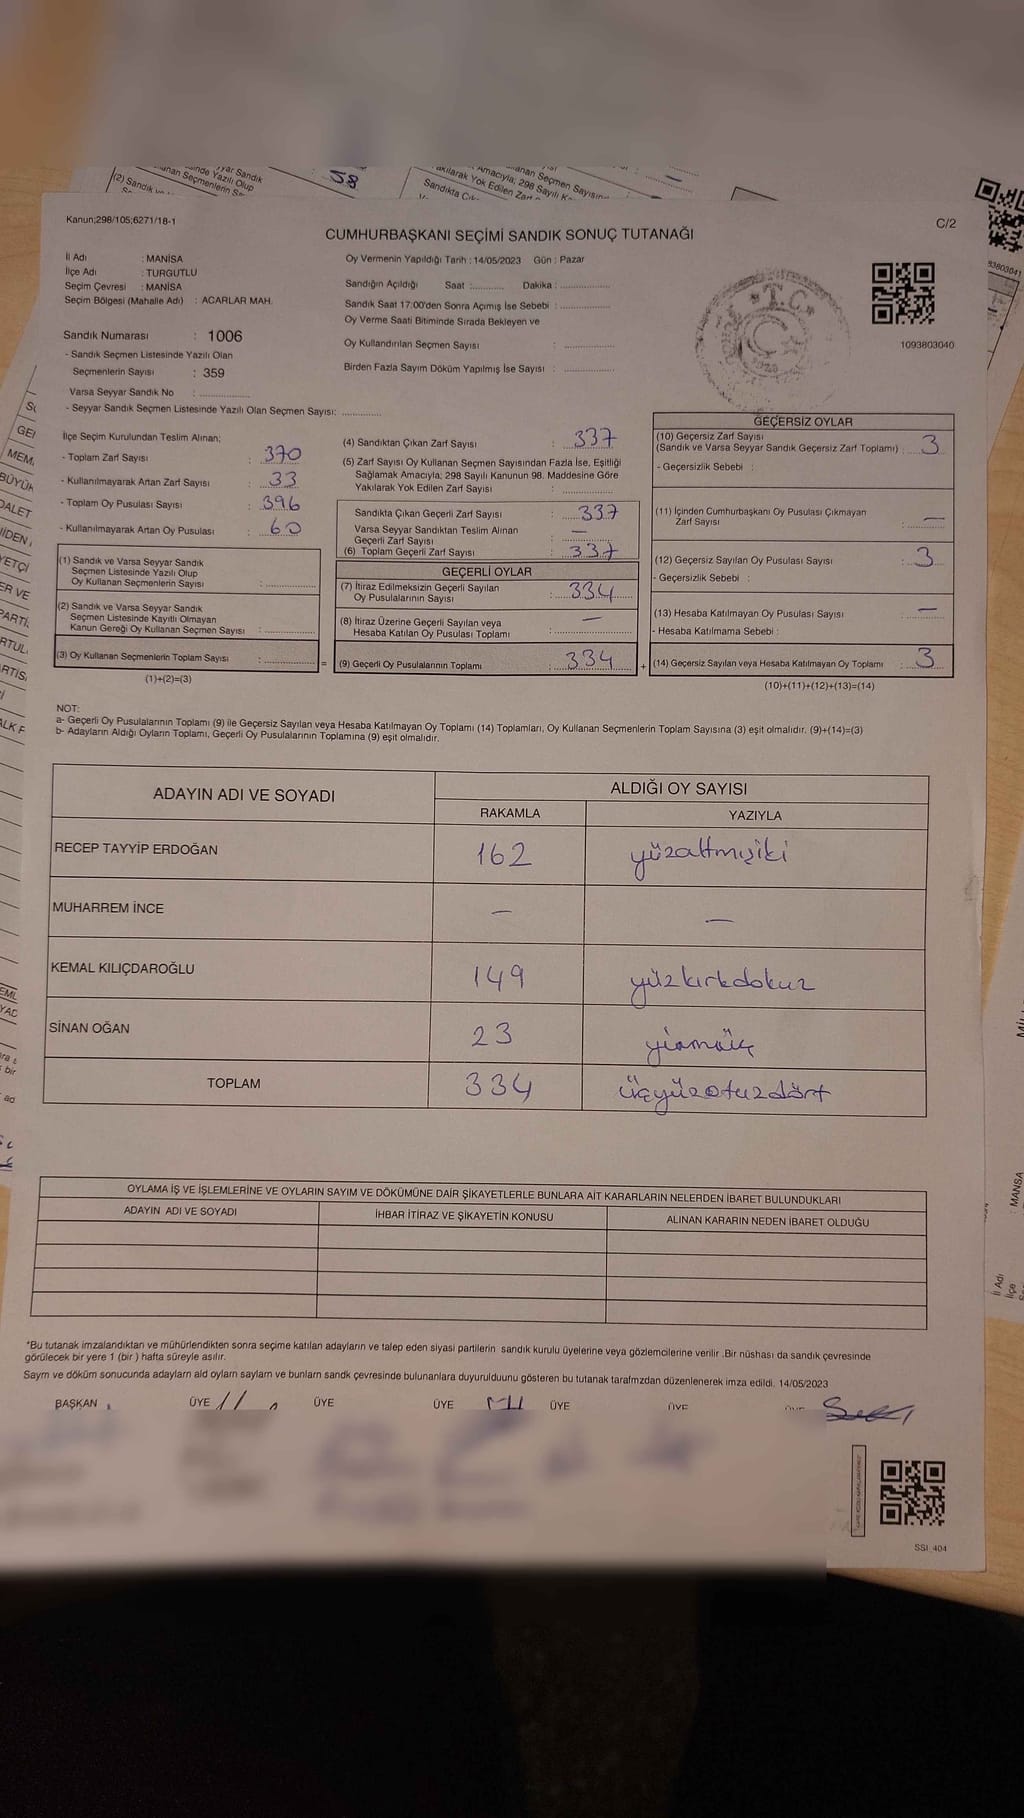 Kanun;298/105;6271/18-1
C/2
CUMHURBAŞKANI SEÇİMİ SANDIK SONUÇ TUTANAĞI
İl Adı : MANİSA
İlçe Adı : TURGUTLU
Seçim Çevresi : MANİSA
Seçim Bölgesi (Mahalle Adı) : ACARLAR MAH.
Oy Vermenin Yapıldığı Tarih : 14/05/2023 Gün : Pazar
Sandığın Açıldığı Saat :.......... Dakika :..............
Sandık Saat 17:00'den Sonra Açımış İse Sebebi :..............
Oy Verme Saati Bitiminde Sırada Bekleyen ve
Oy Kullandırılan Seçmen Sayısı : ..............
Birden Fazla Sayım Döküm Yapılmış İse Sayısı : ..............
T.C
1093803040
Sandık Numarası : 1006
- Sandık Seçmen Listesinde Yazılı Olan
Seçmenlerin Sayısı : 359
Varsa Seyyar Sandık No : ..............
- Seyyar Sandık Seçmen Listesinde Yazılı Olan Seçmen Sayısı: ..............
İlçe Seçim Kurulundan Teslim Alınan;
- Toplam Zarf Sayısı : 370
- Kullanılmayarak Artan Zarf Sayısı : 33
- Toplam Oy Pusulası Sayısı : 396
- Kullanılmayarak Artan Oy Pusulası : 60
(1) Sandık ve Varsa Seyyar Sandık
Seçmen Listesinde Yazılı Olup
Oy Kullanan Seçmenlerin Sayısı : ..............
(2) Sandık ve Varsa Seyyar Sandık
Seçmen Listesinde Kayıtlı Olmayan
Kanun Gereği Oy Kullanan Seçmen Sayısı : ..............
(3) Oy Kullanan Seçmenlerin Toplam Sayısı : ..............
(1)+(2)=(3)
(4) Sandıktan Çıkan Zarf Sayısı : 337
(5) Zarf Sayısı Oy Kullanan Seçmen Sayısından Fazla İse, Eşitliği
Sağlamak Amacıyla; 298 Sayılı Kanunun 98. Maddesine Göre
Yakılarak Yok Edilen Zarf Sayısı : ..............
Sandıkta Çıkan Geçerli Zarf Sayısı : 337
Varsa Seyyar Sandıktan Teslim Alınan
Geçerli Zarf Sayısı : —
(6) Toplam Geçerli Zarf Sayısı : 337
GEÇERLİ OYLAR
(7) İtiraz Edilmeksizin Geçerli Sayılan
Oy Pusulalarının Sayısı : 334
(8) İtiraz Üzerine Geçerli Sayılan veya
Hesaba Katılan Oy Pusulası Toplamı : —
= (9) Geçerli Oy Pusulalarının Toplamı : 334 +
GEÇERSİZ OYLAR
(10) Geçersiz Zarf Sayısı
(Sandık ve Varsa Seyyar Sandık Geçersiz Zarf Toplamı) : 3
- Geçersizlik Sebebi :
(11) İçinden Cumhurbaşkanı Oy Pusulası Çıkmayan
Zarf Sayısı : —
(12) Geçersiz Sayılan Oy Pusulası Sayısı : 3
- Geçersizlik Sebebi :
(13) Hesaba Katılmayan Oy Pusulası Sayısı : —
- Hesaba Katılmama Sebebi :
(14) Geçersiz Sayılan veya Hesaba Katılmayan Oy Toplamı : 3
(10)+(11)+(12)+(13)=(14)
NOT:
a- Geçerli Oy Pusulalarının Toplamı (9) ile Geçersiz Sayılan veya Hesaba Katılmayan Oy Toplamı (14) Toplamları, Oy Kullanan Seçmenlerin Toplam Sayısına (3) eşit olmalıdır. (9)+(14)=(3)
b- Adayların Aldığı Oyların Toplamı, Geçerli Oy Pusulalarının Toplamına (9) eşit olmalıdır.
ADAYIN ADI VE SOYADI ALDIĞI OY SAYISI
RAKAMLA YAZIYLA
RECEP TAYYİP ERDOĞAN 162 yüzaltmışiki
MUHARREM İNCE — —
KEMAL KILIÇDAROĞLU 149 yüzkırkdokuz
SİNAN OĞAN 23 yirmüüç
TOPLAM 334 üçyüzotuzdört
OYLAMA İŞ VE İŞLEMLERİNE VE OYLARIN SAYIM VE DÖKÜMÜNE DAİR ŞİKAYETLERLE BUNLARA AİT KARARLARIN NELERDEN İBARET BULUNDUKLARI
ADAYIN ADI VE SOYADI İHBAR İTİRAZ VE ŞİKAYETİN KONUSU ALINAN KARARIN NEDEN İBARET OLDUĞU
*Bu tutanak imzalandıktan ve mühürlendikten sonra seçime katılan adayların ve talep eden siyasi partilerin sandık kurulu üyelerine veya gözlemcilerine verilir .Bir nüshası da sandık çevresinde
görülecek bir yere 1 (bir ) hafta süreyle asılır.
Saym ve döküm sonucunda adaylarn ald oylarn saylarn ve bunlarn sandk çevresinde bulunanlara duyurulduunu gösteren bu tutanak tarafmzdan düzenlenerek imza edildi. 14/05/2023
BAŞKAN ÜYE ÜYE ÜYE ÜYE ÜYE
SSI 404